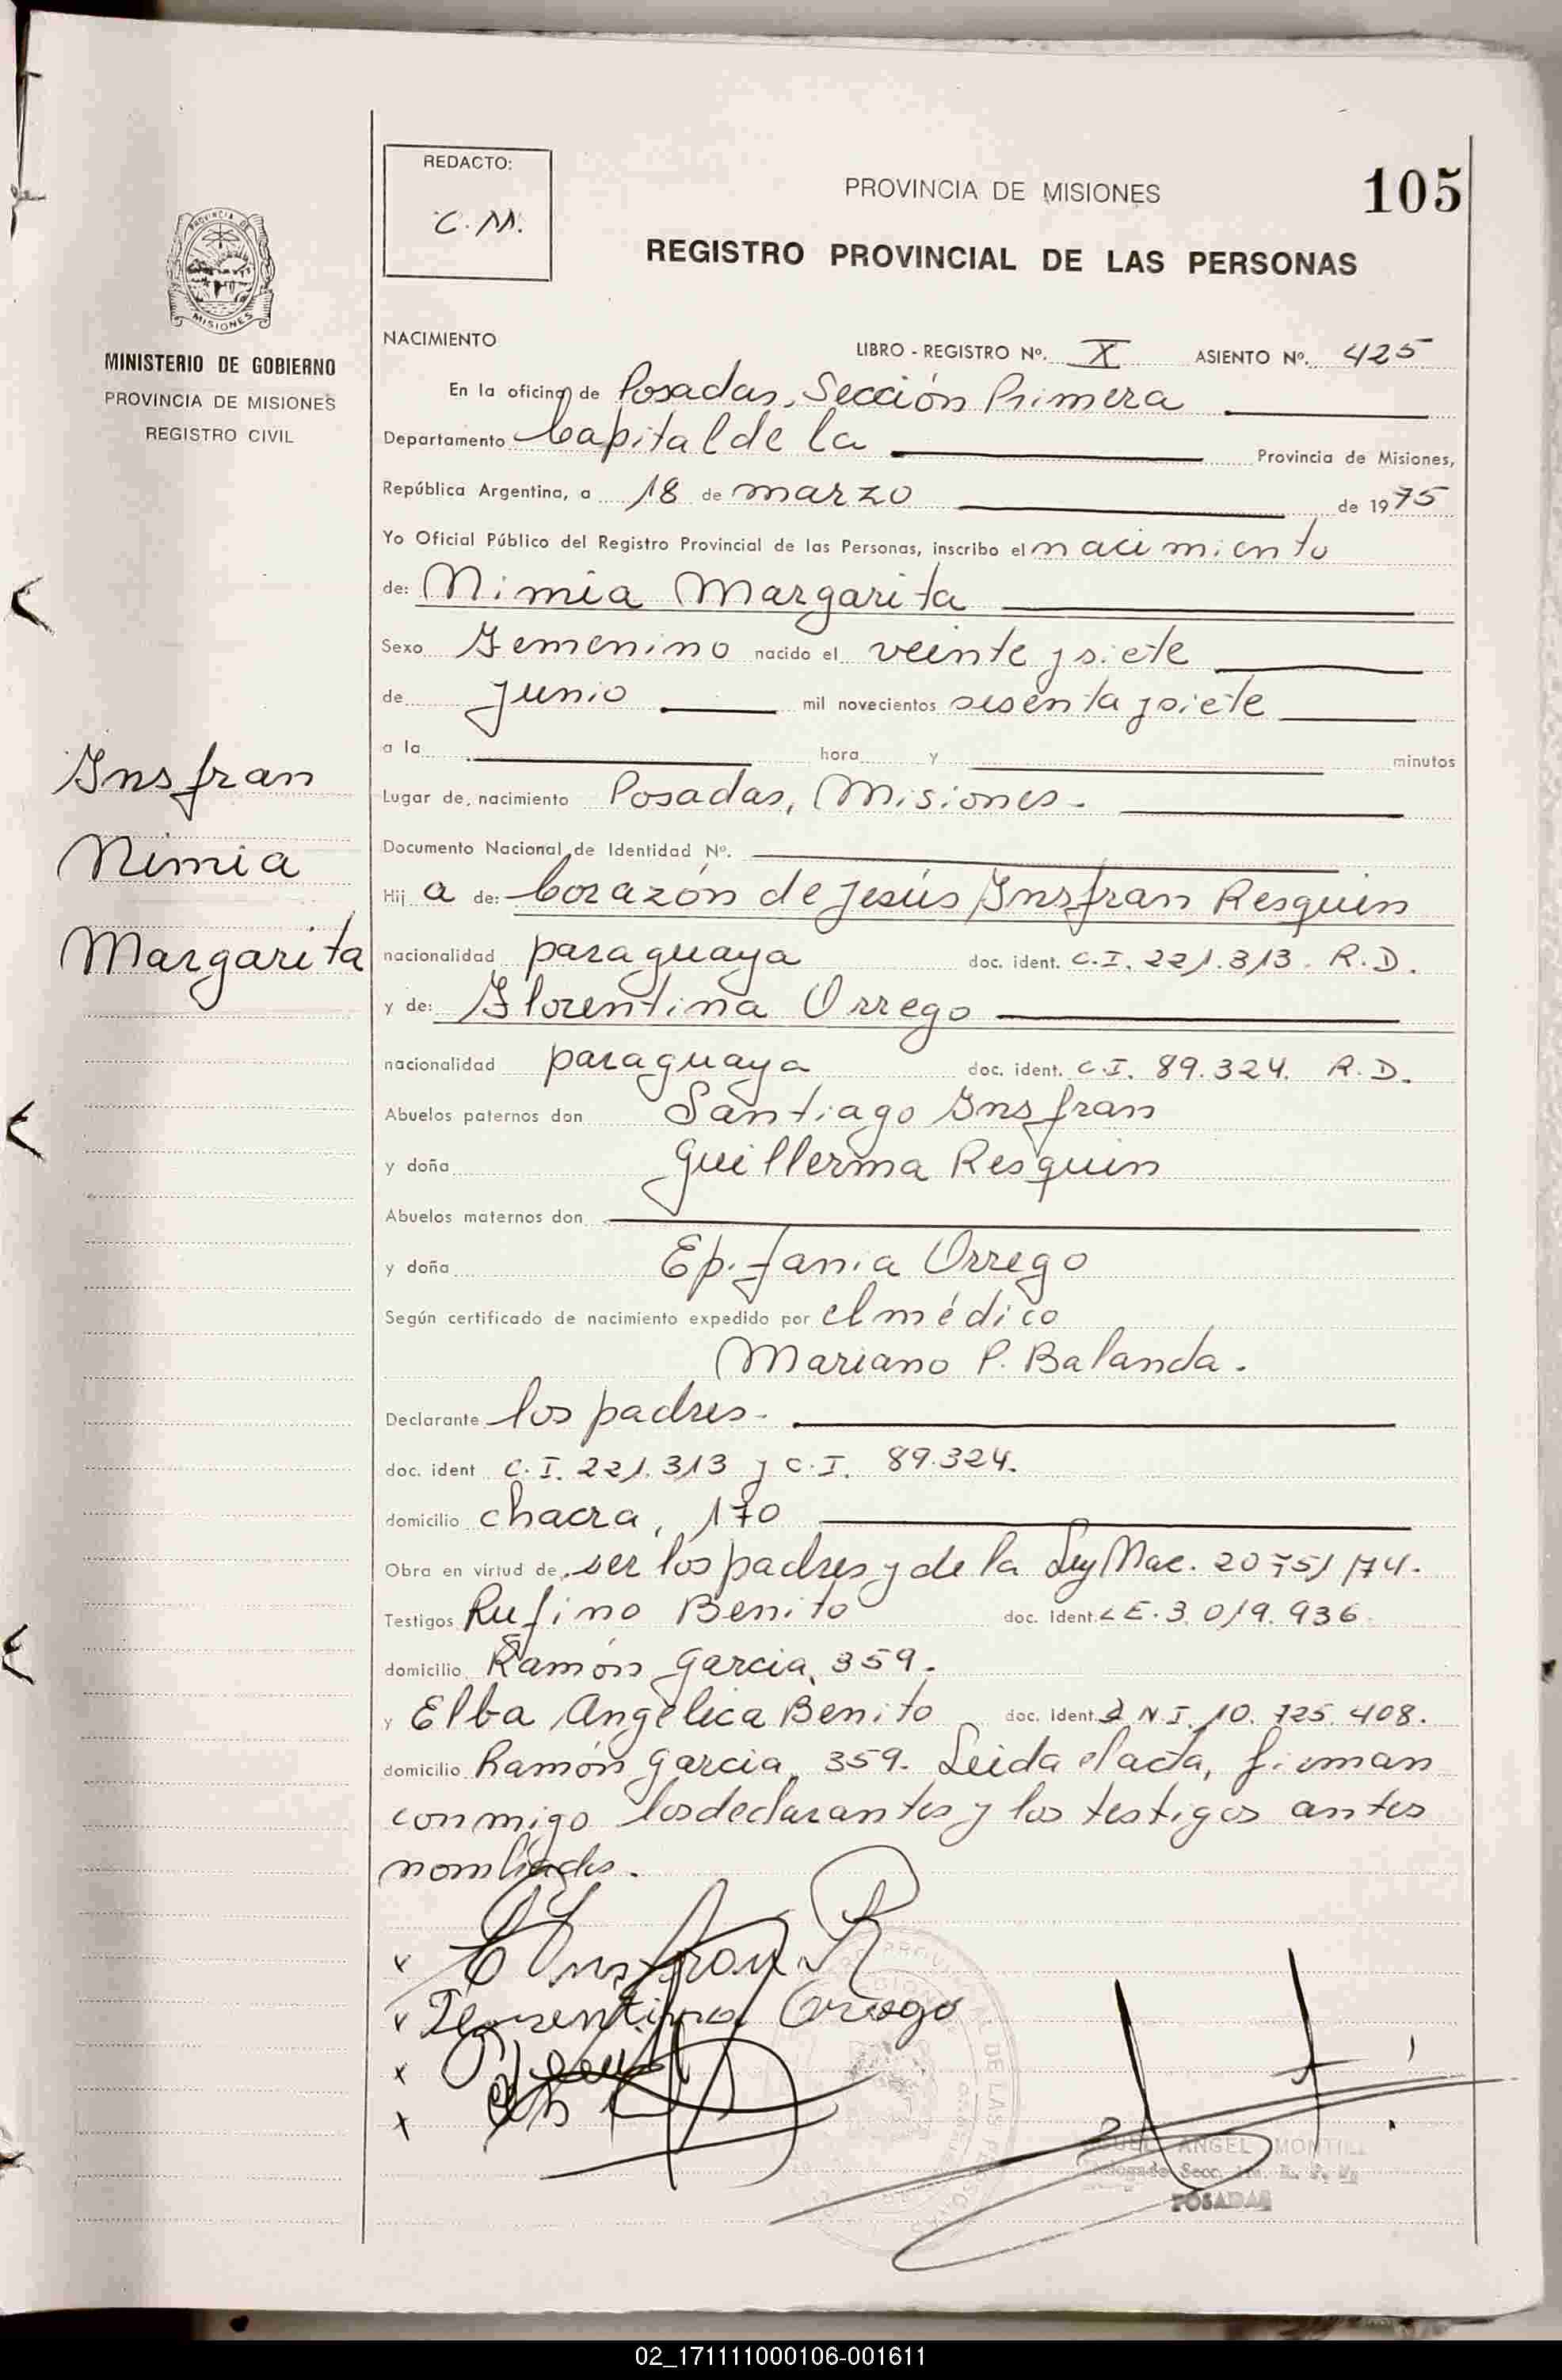 REDACTO:
C.M.
PROVINCIA DE MISIONES
105
REGISTRO PROVINCIAL DE LAS PERSONAS
PROVINCIA DE
MISIONES
MINISTERIO DE GOBIERNO
PROVINCIA DE MISIONES
REGISTRO CIVIL
NACIMIENTO
LIBRO - REGISTRO Nº. X ASIENTO Nº. 425
En la oficina de Posadas, Sección Primera
Departamento Capital de la Provincia de Misiones,
República Argentina, a 18 de marzo de 1975
Yo Oficial Público del Registro Provincial de las Personas, inscribo el nacimiento
de: Nimia Margarita
Sexo Femenino nacido el veinte y siete
de junio mil novecientos sesenta y siete
a la hora y minutos
Insfran
Nimia
Margarita
Lugar de nacimiento Posadas, Misiones.
Documento Nacional de Identidad Nº.
Hij a de: Corazón de Jesús Insfran Resquin
nacionalidad paraguaya doc. ident. C.I. 221.313. R.D.
y de: Florentina Orrego
nacionalidad paraguaya doc. ident. C.I. 89.324. R.D.
Abuelos paternos don Santiago Insfran
y doña Guillerma Resquin
Abuelos maternos don
y doña Epifania Orrego
Según certificado de nacimiento expedido por el médico
Mariano P. Balanda.
Declarante los padres.
doc. ident C.I. 221.313 y C.I. 89.324.
domicilio chacra, 170
Obra en virtud de ser los padres y de la Ley Nac. 20751/74.
Testigos Rufino Benito doc. Ident. LE. 3.019.936
domicilio Ramón Garcia, 359.
y Elba Angélica Benito doc. Ident. D.N.I. 10.725.408.
domicilio Ramón Garcia, 359. Leida el acta, firman
conmigo los declarantes y los testigos antes
nombrados.
x C Insfran R
x Florentina Orrego
x
x
ANGEL MONTI
Secc. 1ra. R. P. P.
POSADAS
02_171111000106-001611